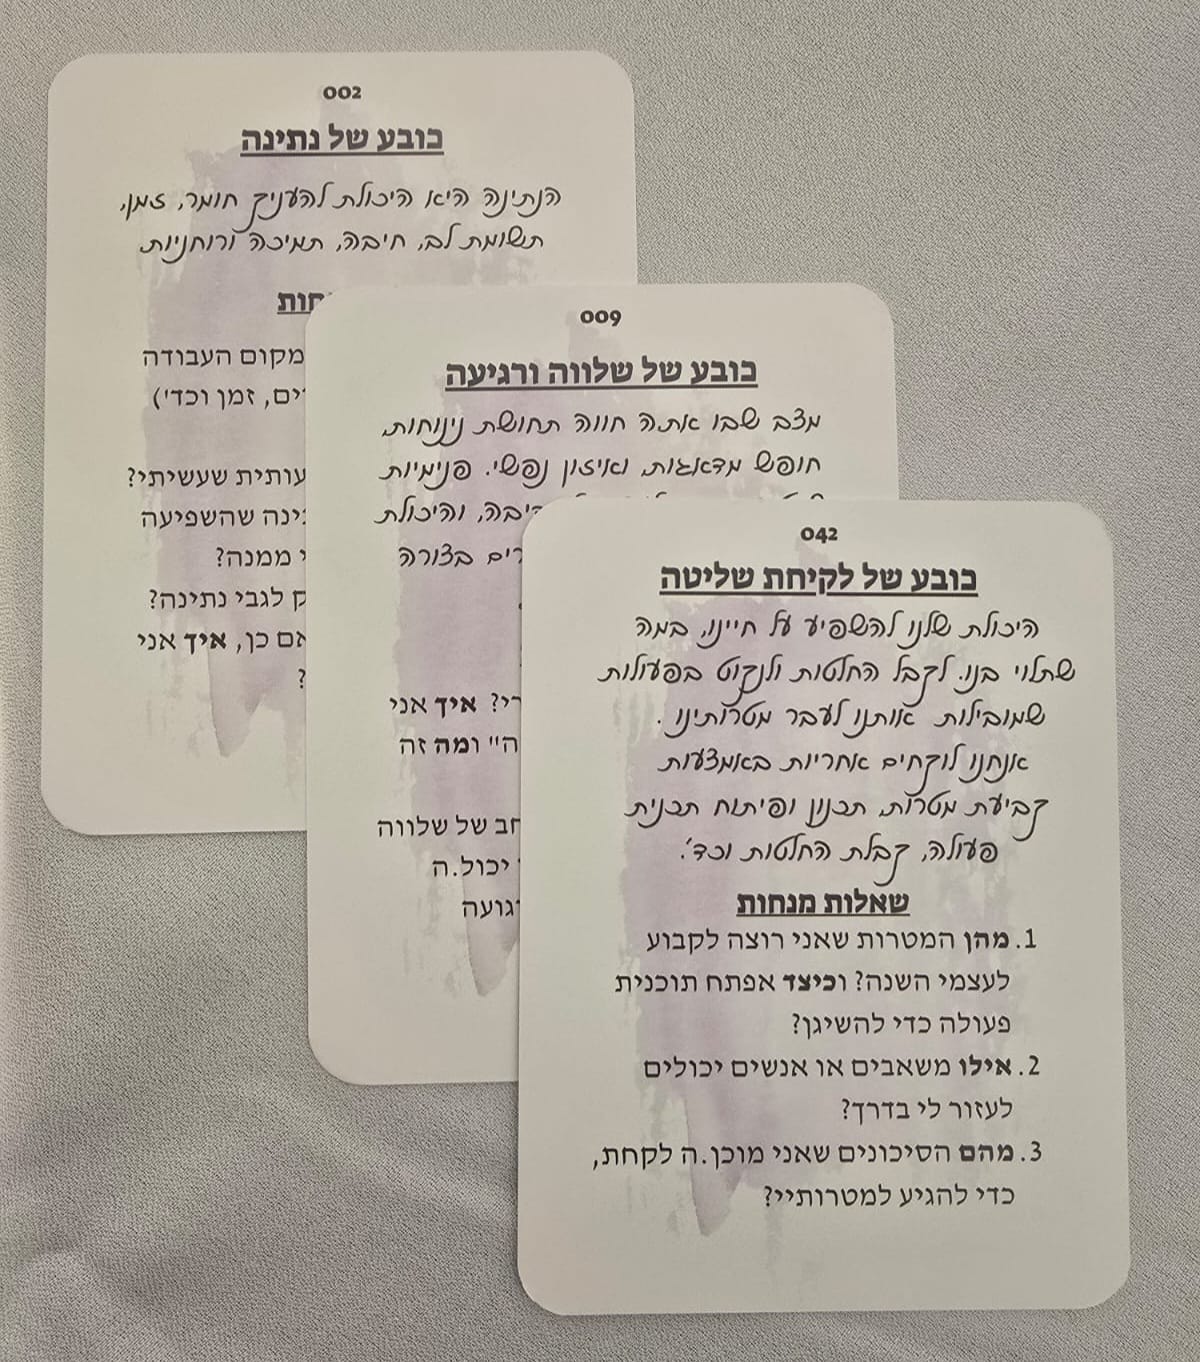 002
כובע של נתינה
הנתינה היא היכולת להעניק חומר, זמן,
תשומת לב, חיבה, תמיכה ורוחניות
מקום העבודה
זמן וכד')
שעשיתי?
שהשפיעה
ממנה?
לגבי נתינה?
אם כן, איך אני
?
009
כובע של שלווה ורגיעה
מצב שבו את.ה חווה תחושת נינוחות,
חופש מדאגות, ואיזון נפשי. פנימיות
והיכולת
בצורה
איך אני
ומה זה
של שלווה
יכול.ה
042
כובע של לקיחת שליטה
היכולת שלנו להשפיע על חיינו, במה
שתלוי בנו. לקבל החלטות ולנקוט בפעולות
שמובילות אותנו לעבר מטרותינו.
אנחנו לוקחים אחריות באמצעות
קביעת מטרות, תכנון ופיתוח תכנית
פעולה, קבלת החלטות וכד'.
שאלות מנחות
1. מהן המטרות שאני רוצה לקבוע
לעצמי השנה? וכיצד אפתח תוכנית
פעולה כדי להשיגן?
2. אילו משאבים או אנשים יכולים
לעזור לי בדרך?
3. מהם הסיכונים שאני מוכן.ה לקחת,
כדי להגיע למטרותיי?